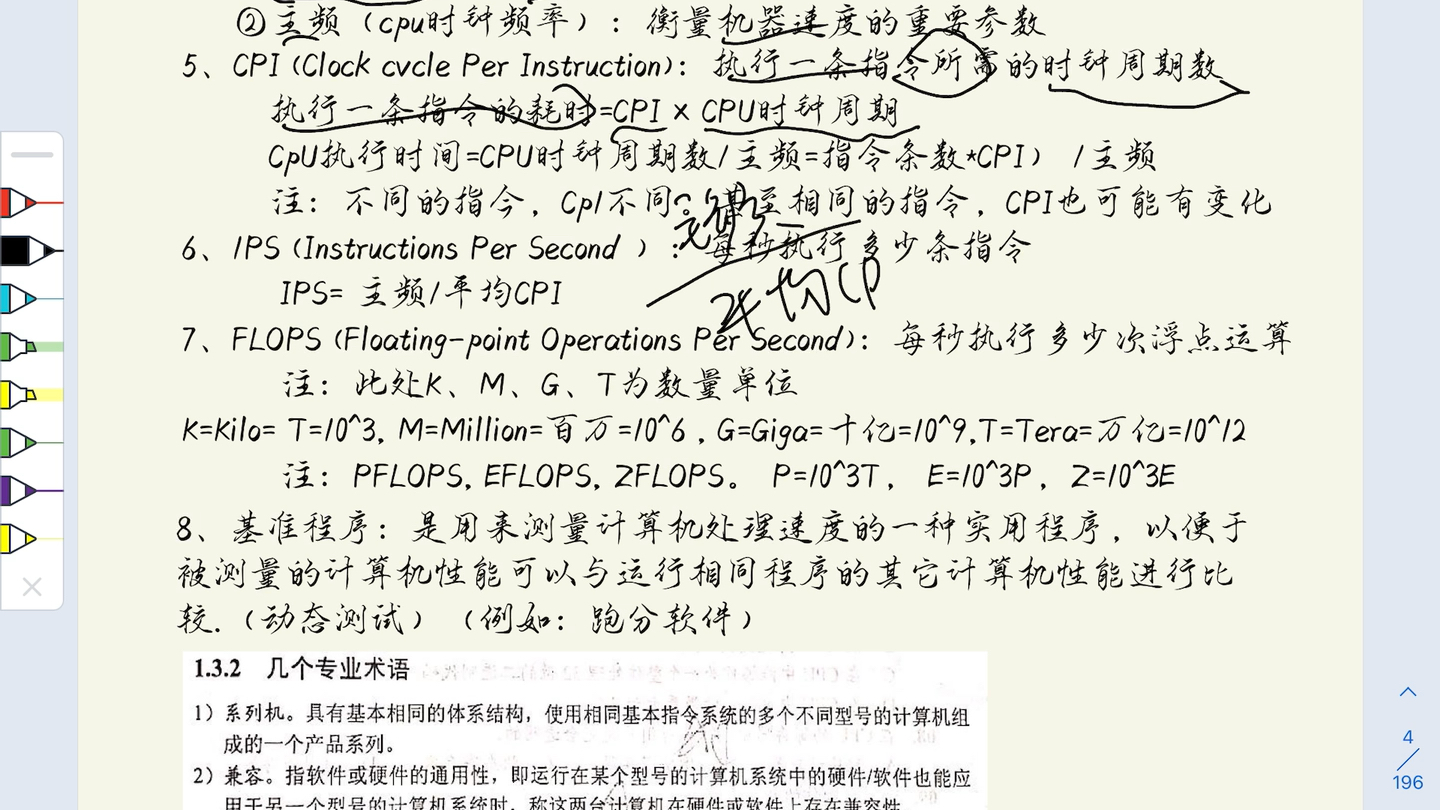 ②主频（cpu时钟频率）：衡量机器速度的重要参数
5、CPI (Clock cvcle Per Instruction)：执行一条指令所需的时钟周期数
执行一条指令的耗时=CPI × CPU时钟周期
CpU执行时间=CPU时钟周期数/主频=指令条数*CPI） /主频
注：不同的指令，CpI不同。甚至相同的指令，CPI也可能有变化
6、IPS (Instructions Per Second ）：每秒执行多少条指令
平均CP
IPS= 主频/平均CPI
7、FLOPS (Floating-point Operations Per Second)：每秒执行多少次浮点运算
注：此处K、M、G、T为数量单位
K=Kilo= T=10^3, M=Million=百万=10^6 , G=Giga=十亿=10^9,T=Tera=万亿=10^12
注：PFLOPS, EFLOPS, ZFLOPS。 P=10^3T , E=10^3P , Z=10^3E
8、基准程序：是用来测量计算机处理速度的一种实用程序，以便于
被测量的计算机性能可以与运行相同程序的其它计算机性能进行比
较.（动态测试）（例如：跑分软件）
1.3.2 几个专业术语
1）系列机。具有基本相同的体系结构，使用相同基本指令系统的多个不同型号的计算机组
成的一个产品系列。
2）兼容。指软件或硬件的通用性，即运行在某个型号的计算机系统中的硬件/软件也能应
用于另一个型号的计算机系统时，称这两台计算机在硬件或软件上存在兼容性
4
196